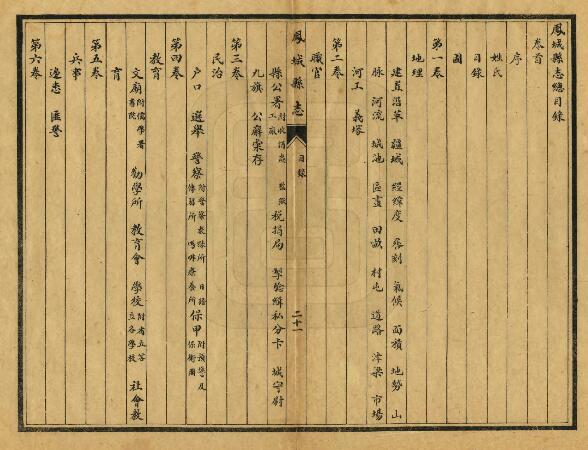 鳳城縣志總目錄
卷首
序
姓氏
目錄
圖
第一卷
地理
建置沿革 疆域 經緯度 晷刻 氣候 面積 地勢 山
脉 河流 城池 區畫 田畝 村屯 道路 津梁 市場
河工 義塚
第二卷
職官
鳳城縣志 目錄 二十一
縣公署 税捐局 緝私分卡 城守尉
九旗 公廨棠存
第三卷
民治
户口 選舉 警察 附警察教練所 日語傳習所 保甲 附預警及保衛團
第四卷
教育
文廟 附儒學署書院 勸學所 教育會 學校 附省立各學校 社會教
育
第五卷
兵事
邊患 匪警
第六卷